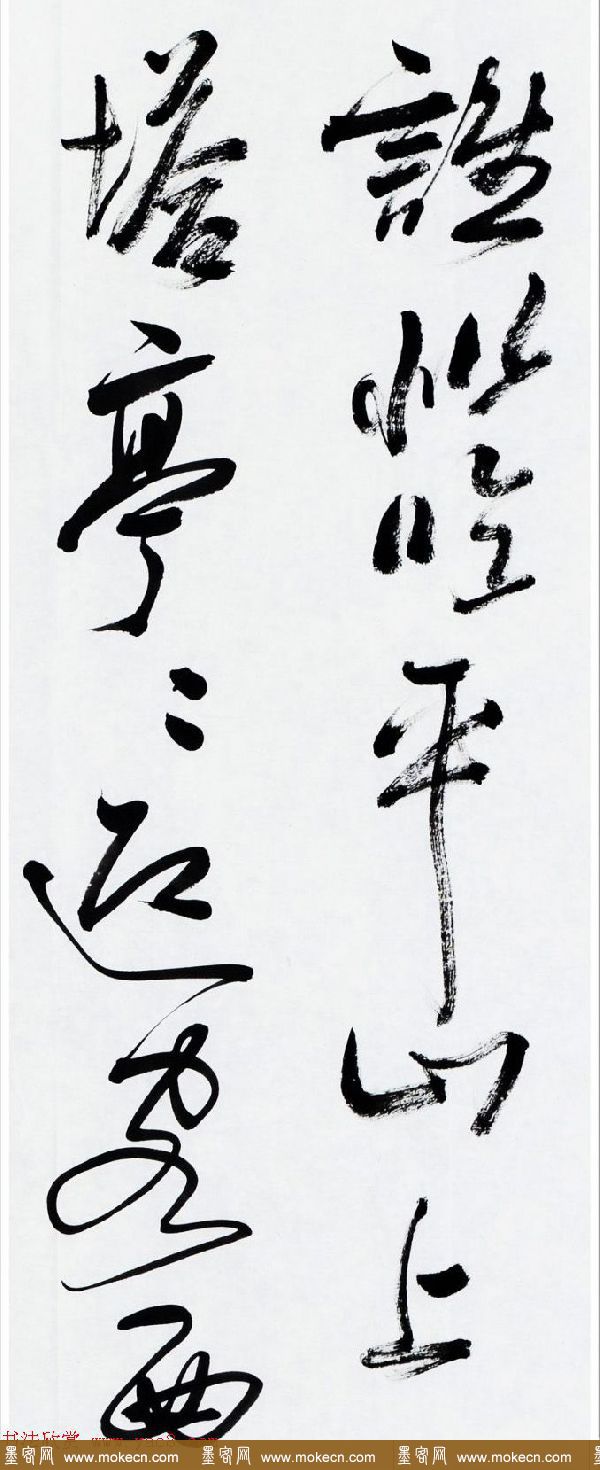 誰似臨平山上
塔亭〻迎客西
书法欣赏
墨客网 www.mokecn.com 墨客网 www.mokecn.com 墨客网 www.mokecn.com